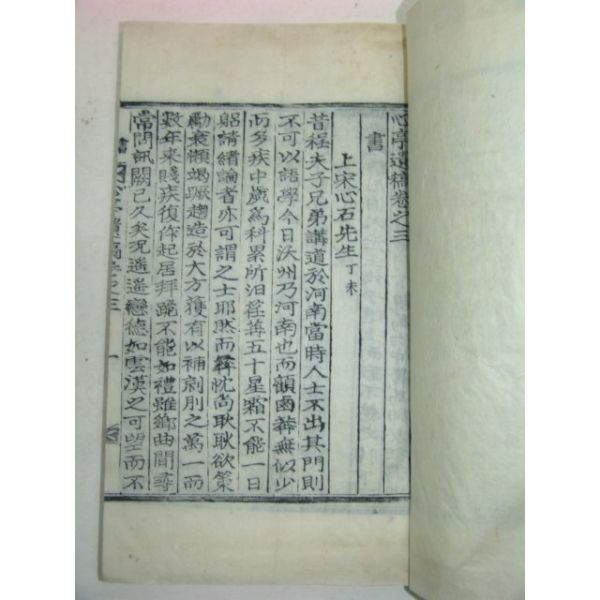 心亭遺稿卷之三
書
上宋心石先生 丁未
昔程夫子兄弟講道於河南當時人士不出其門則
不可以語學今日沃州乃河南也而顧鹵莽無似少
而多疾中歲爲科累所汩荏苒五十星霜不能一日
躬請緖論者亦可謂之士耶然而彛忱尚耿耿欲策
勵衰懶竭蹶趨造於大方獲有以補劑刖之萬一而
數年來賤疾復作起居拜跪不能如禮雖鄕曲間尋
常問訊闕已久矣況遥遥戀德如雲漢之可望而不
書 心亭遺稿卷之三 一